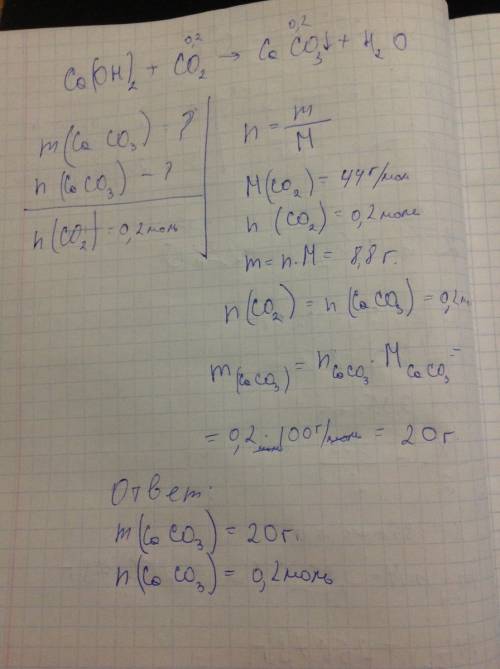 0,2 0,2
Ca(OH)2 + CO2 → CaCO3↓ + H2O
m(CaCO3) - ?
n(CaCO3) - ?
n(CO2) = 0,2 моль
n = m/M
M(CO2) = 44 г/мол
n (CO2) = 0,2 моле
m = n·M = 8,8 г.
n(CO2) = n(CaCO3) = 0,2 м
m(CaCO3) = nCaCO3 · MCaCO3 =
= 0,2 моль · 100 г/моль = 20 г
Ответ:
m(CaCO3) = 20 г.
n(CaCO3) = 0,2 моль